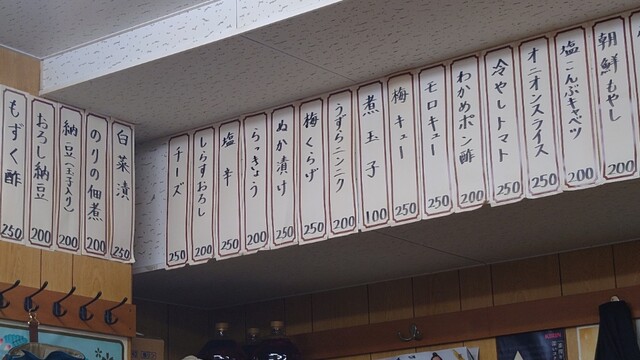 朝鮮もやし 200
塩こんぶキャベツ 200
オニオンスライス 250
冷やしトマト 250
わかめポン酢 200
モロキュー 250
梅キュー 250
煮玉子 100
うずらニンニク 200
梅くらげ 250
ぬか漬け 250
らっきょう 200
塩辛 250
しらすおろし 200
チーズ 250
白菜漬 250
のりの佃煮 200
納豆(玉子入り) 200
おろし納豆 200
もずく酢 250